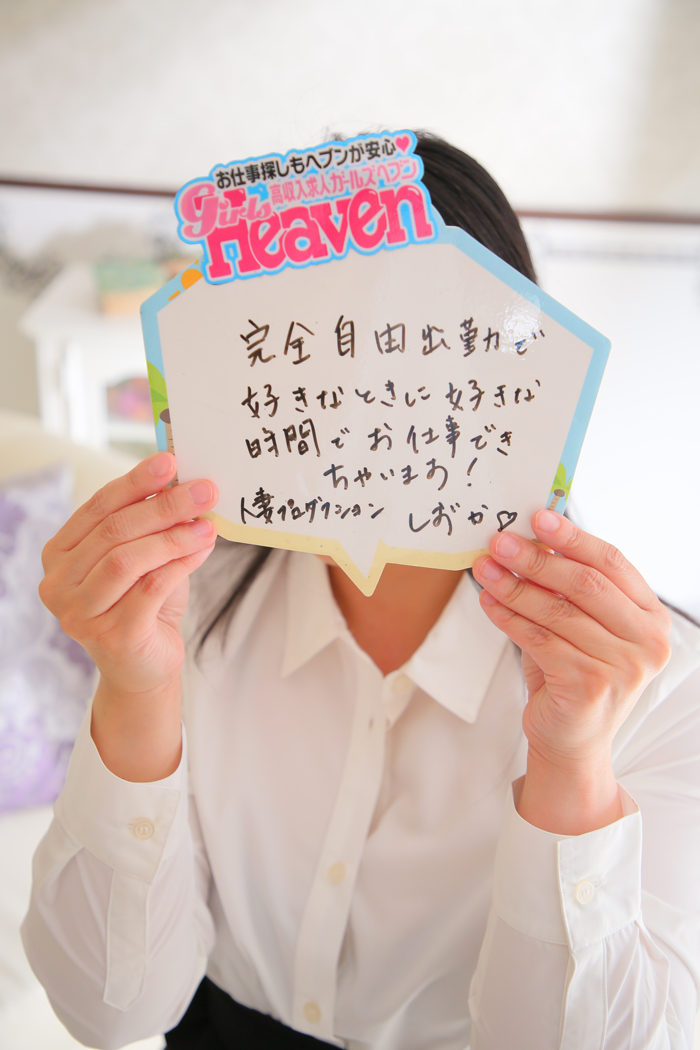 お仕事探しもヘブンが安心♥
高収入求人ガールズヘブン
Girls
Heaven
完全自由出勤で
好きなときに好きな
時間でお仕事でき
ちゃいます！
人妻プロダクション しおか♡